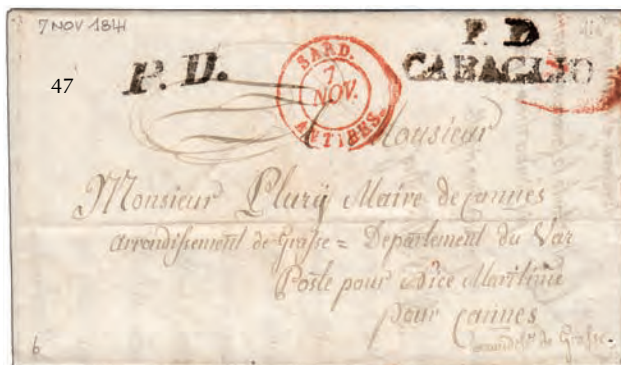 7 NOV 1841
47
P. D.
SARD.
7
NOV.
ANTIBES.
P. D
CARAGLIO
Monsieur
Monsieur Maire de Cannes
arrondissement de Grasse = Departement du Var
Poste pour Nice Maritime
pour Cannes
arrondisst. de Grasse.
6